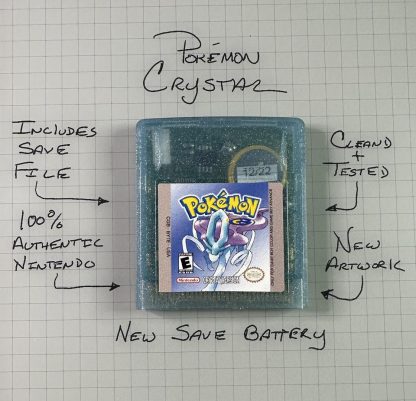 Pokémon
Crystal
Includes
Save
File
100%
Authentic
Nintendo
Cleand
+
Tested
New
Artwork
12/22
Pokémon
E
Nintendo
New Save Battery